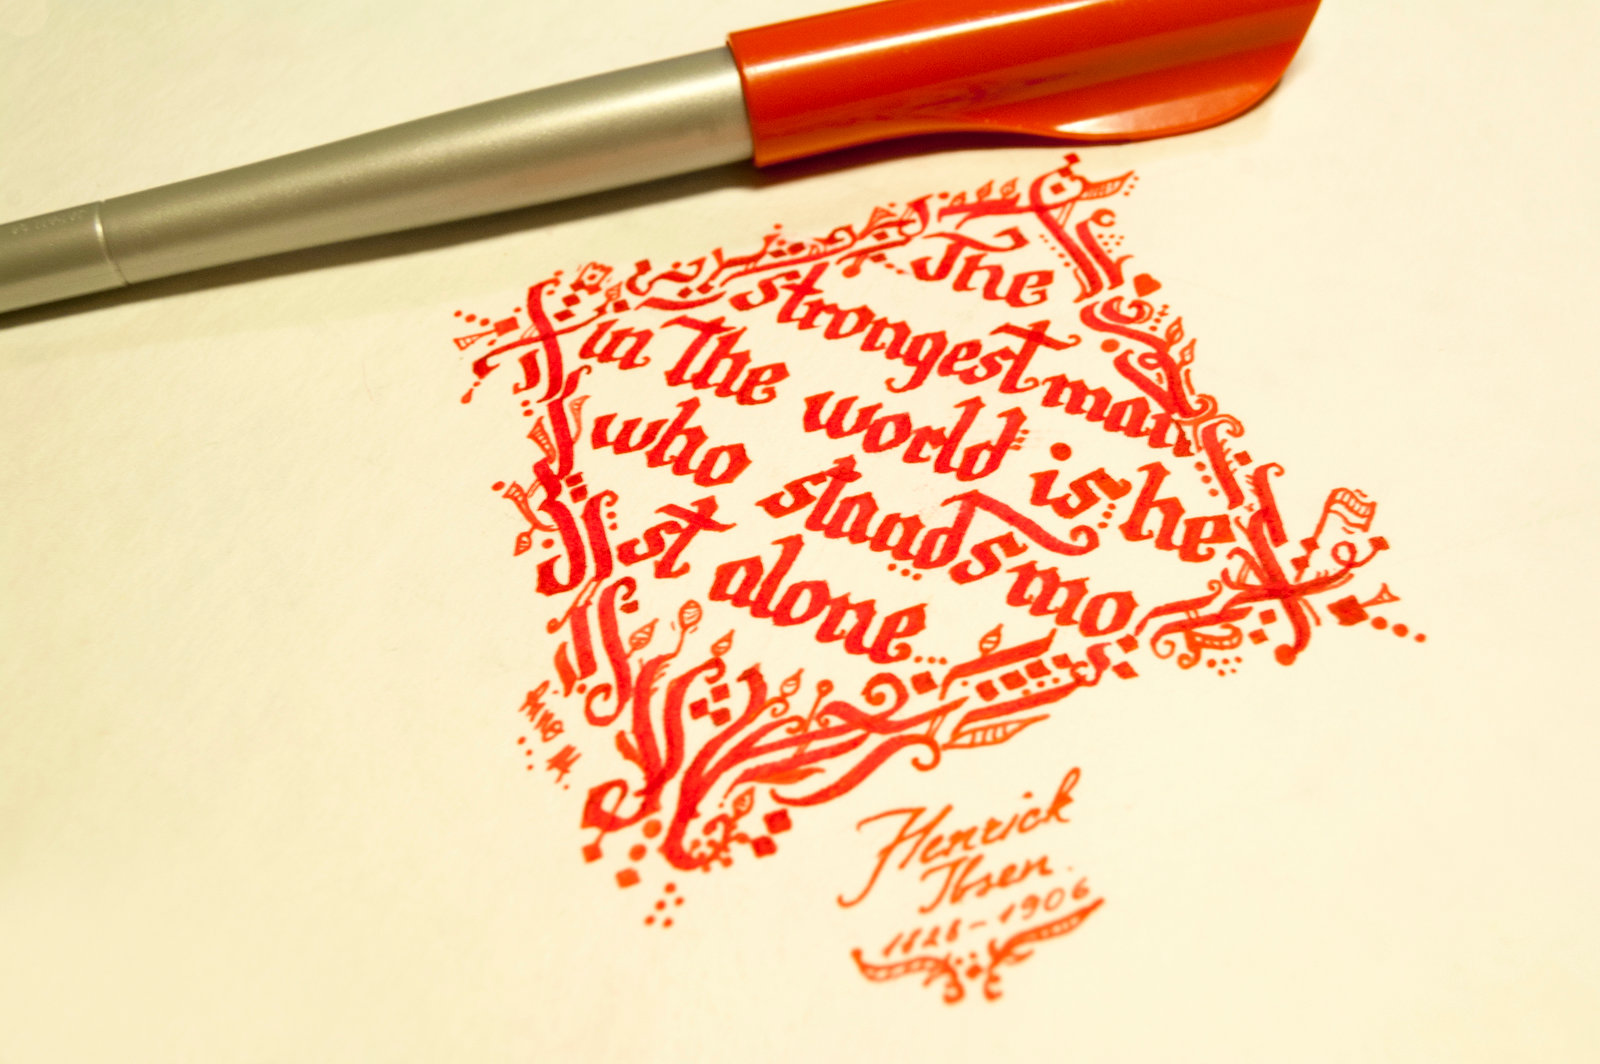 The
strongest man
in the world is he
who stands mo
st alone...
Henrick
Ibsen.
1828-1906